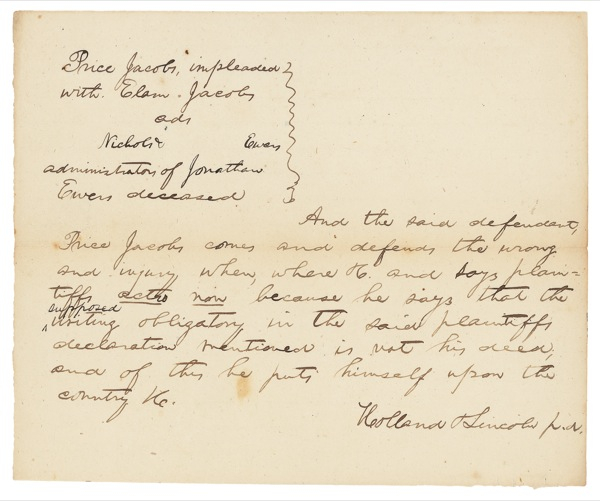 Price Jacobs, impleaded
with Elam Jacobs
ads
Nichols & Ewers
administrators of Jonathan
Ewers deceased
And the said defendant,
Price Jacobs comes and defends the wrong
and injury when, where &c. and says plain=
tiffs actio non because he says that the
supposed
writing obligatory in the said plaintiffs
declaration mentioned is not his deed,
and of this he puts himself upon the
country &c.
Holland & Lincoln p.d.